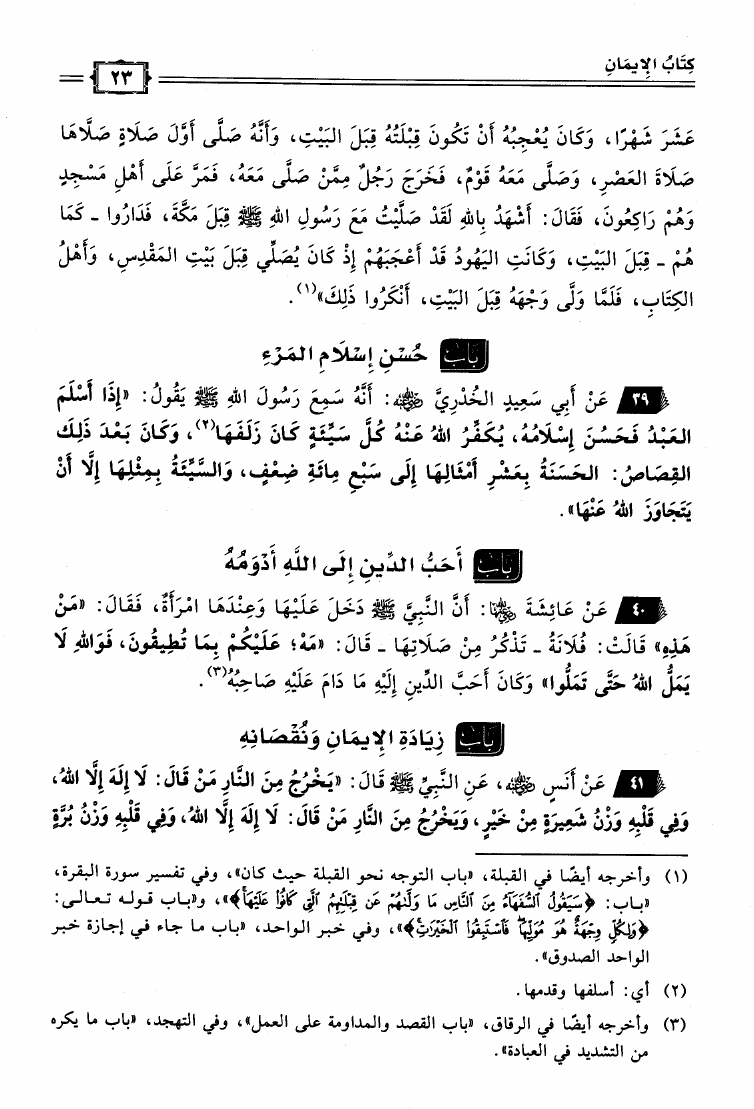 كِتَابُ الإِيمَانِ
٢٣
عَشَرَ شَهْرًا، وَكَانَ يُعْجِبُهُ أَنْ تَكُونَ قِبْلَتُهُ قِبَلَ البَيْتِ، وَأَنَّهُ صَلَّى أَوَّلَ صَلَاةٍ صَلَّاهَا
صَلَاةَ العَصْرِ، وَصَلَّى مَعَهُ قَوْمٌ، فَخَرَجَ رَجُلٌ مِمَّنْ صَلَّى مَعَهُ، فَمَرَّ عَلَى أَهْلِ مَسْجِدٍ
وَهُمْ رَاكِعُونَ، فَقَالَ: أَشْهَدُ بِاللهِ لَقَدْ صَلَّيْتُ مَعَ رَسُولِ اللهِ ﷺ قِبَلَ مَكَّةَ، فَدَارُوا - كَمَا
هُمْ - قِبَلَ البَيْتِ، وَكَانَتِ اليَهُودُ قَدْ أَعْجَبَهُمْ إِذْ كَانَ يُصَلِّي قِبَلَ بَيْتِ المَقْدِسِ، وَأَهْلُ
الكِتَابِ، فَلَمَّا وَلَّى وَجْهَهُ قِبَلَ البَيْتِ، أَنْكَرُوا ذَلِكَ»(١).
باب حُسْنِ إِسْلَامِ المَرْءِ
٣٩ عَنْ أَبِي سَعِيدٍ الخُدْرِيِّ رضي الله عنه: أَنَّهُ سَمِعَ رَسُولَ اللهِ ﷺ يَقُولُ: «إِذَا أَسْلَمَ
العَبْدُ فَحَسُنَ إِسْلَامُهُ، يُكَفِّرُ اللهُ عَنْهُ كُلَّ سَيِّئَةٍ كَانَ زَلَفَهَا(٢)، وَكَانَ بَعْدَ ذَلِكَ
القِصَاصُ: الحَسَنَةُ بِعَشْرِ أَمْثَالِهَا إِلَى سَبْعِ مِائَةِ ضِعْفٍ، وَالسَّيِّئَةُ بِمِثْلِهَا إِلَّا أَنْ
يَتَجَاوَزَ اللهُ عَنْهَا».
باب أَحَبُّ الدِّينِ إِلَى اللَّهِ أَدْوَمُهُ
٤٠ عَنْ عَائِشَةَ رضي الله عنها: أَنَّ النَّبِيَّ ﷺ دَخَلَ عَلَيْهَا وَعِنْدَهَا امْرَأَةٌ، فَقَالَ: «مَنْ
هَذِهِ» قَالَتْ: فُلَانَةُ - تَذْكُرُ مِنْ صَلَاتِهَا - قَالَ: «مَهْ؛ عَلَيْكُمْ بِمَا تُطِيقُونَ، فَوَاللهِ لَا
يَمَلُّ اللهُ حَتَّى تَمَلُّوا» وَكَانَ أَحَبَّ الدِّينِ إِلَيْهِ مَا دَامَ عَلَيْهِ صَاحِبُهُ(٣).
باب زِيَادَةِ الإِيمَانِ وَنُقْصَانِهِ
٤١ عَنْ أَنَسٍ رضي الله عنه، عَنِ النَّبِيِّ ﷺ قَالَ: «يَخْرُجُ مِنَ النَّارِ مَنْ قَالَ: لَا إِلَهَ إِلَّا اللهُ،
وَفِي قَلْبِهِ وَزْنُ شَعِيرَةٍ مِنْ خَيْرٍ، وَيَخْرُجُ مِنَ النَّارِ مَنْ قَالَ: لَا إِلَهَ إِلَّا اللهُ، وَفِي قَلْبِهِ وَزْنُ بُرَّةٍ
(١) وأخرجه أيضًا في القبلة، «باب التوجه نحو القبلة حيث كان»، وفي تفسير سورة البقرة،
«باب: ﴿سَيَقُولُ ٱلسُّفَهَآءُ مِنَ ٱلنَّاسِ مَا وَلَّىٰهُمْ عَن قِبْلَتِهِمُ ٱلَّتِى كَانُوا۟ عَلَيْهَا﴾»، و«باب قوله تعالى:
﴿وَلِكُلٍّ وِجْهَةٌ هُوَ مُوَلِّيهَا فَٱسْتَبِقُوا۟ ٱلْخَيْرَٰتِ﴾»، وفي خبر الواحد، «باب ما جاء في إجازة خبر
الواحد الصدوق».
(٢) أي: أسلفها وقدمها.
(٣) وأخرجه أيضًا في الرقاق، «باب القصد والمداومة على العمل»، وفي التهجد، «باب ما يكره
من التشديد في العبادة».